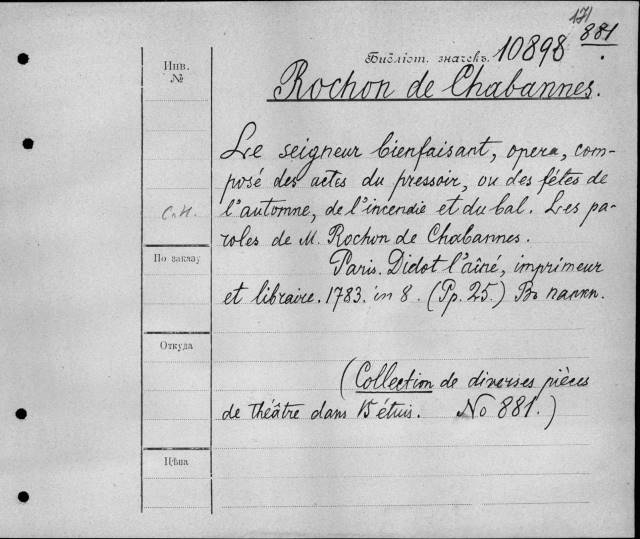 171
881
Библіот. значекъ. 10898
Инв.
№
Rochon de Chabannes.
Le seigneur bienfaisant, opera, com-
posé des actes du pressoir, ou des fétes de
С.Н.
l'automne, de l'incendie et du bal. Les pa-
roles de M. Rochon de Chabannes.
По заказу
Paris. Didot l'aîné, imprimeur
et libraire. 1783. in 8. (Pp. 25.) Въ папкѣ.
Откуда
(Collection de diverses pièces
de théâtre dans 15 étuis. No 881.)
Цѣна